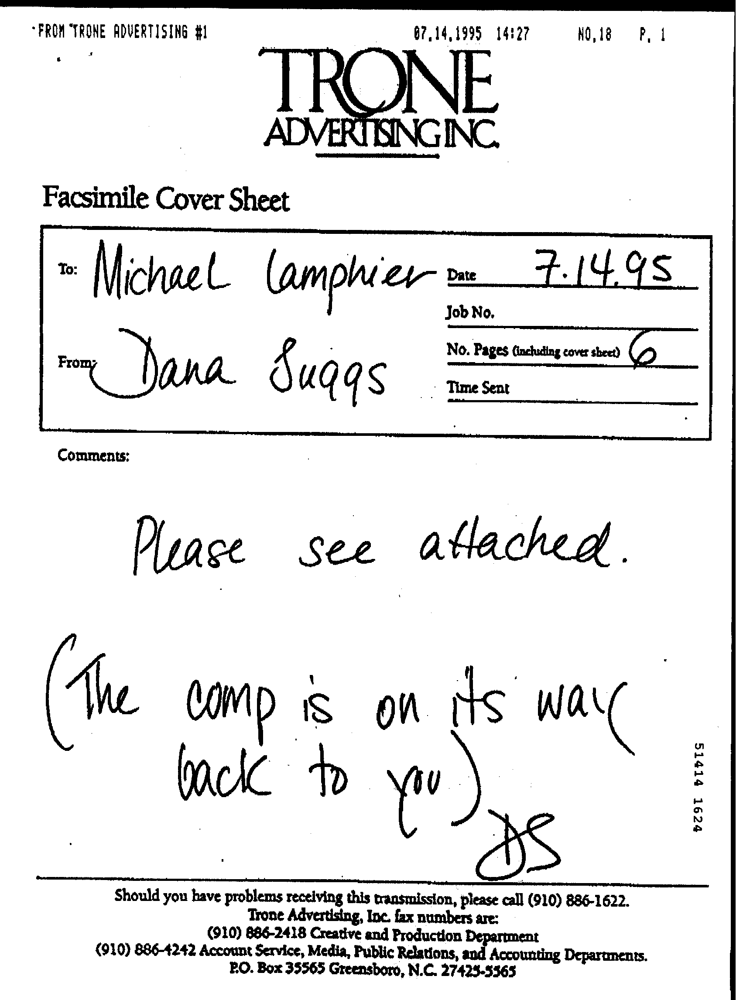 FROM TRONE ADVERTISING #1 07.14.1995 14:27 NO.18 P. 1
TRONE
ADVERTISING INC.
Facsimile Cover Sheet
To: Michael Lamphier
Date 7.14.95
Job No.
From: Dana Suggs
No. Pages (including cover sheet) 6
Time Sent
Comments:
Please see attached.
(The comp is on its way
back to you)
DS
51414 1624
Should you have problems receiving this transmission, please call (910) 886-1622.
Trone Advertising, Inc. fax numbers are:
(910) 886-2418 Creative and Production Department
(910) 886-4242 Account Service, Media, Public Relations, and Accounting Departments.
P.O. Box 35565 Greensboro, N.C. 27425-5565